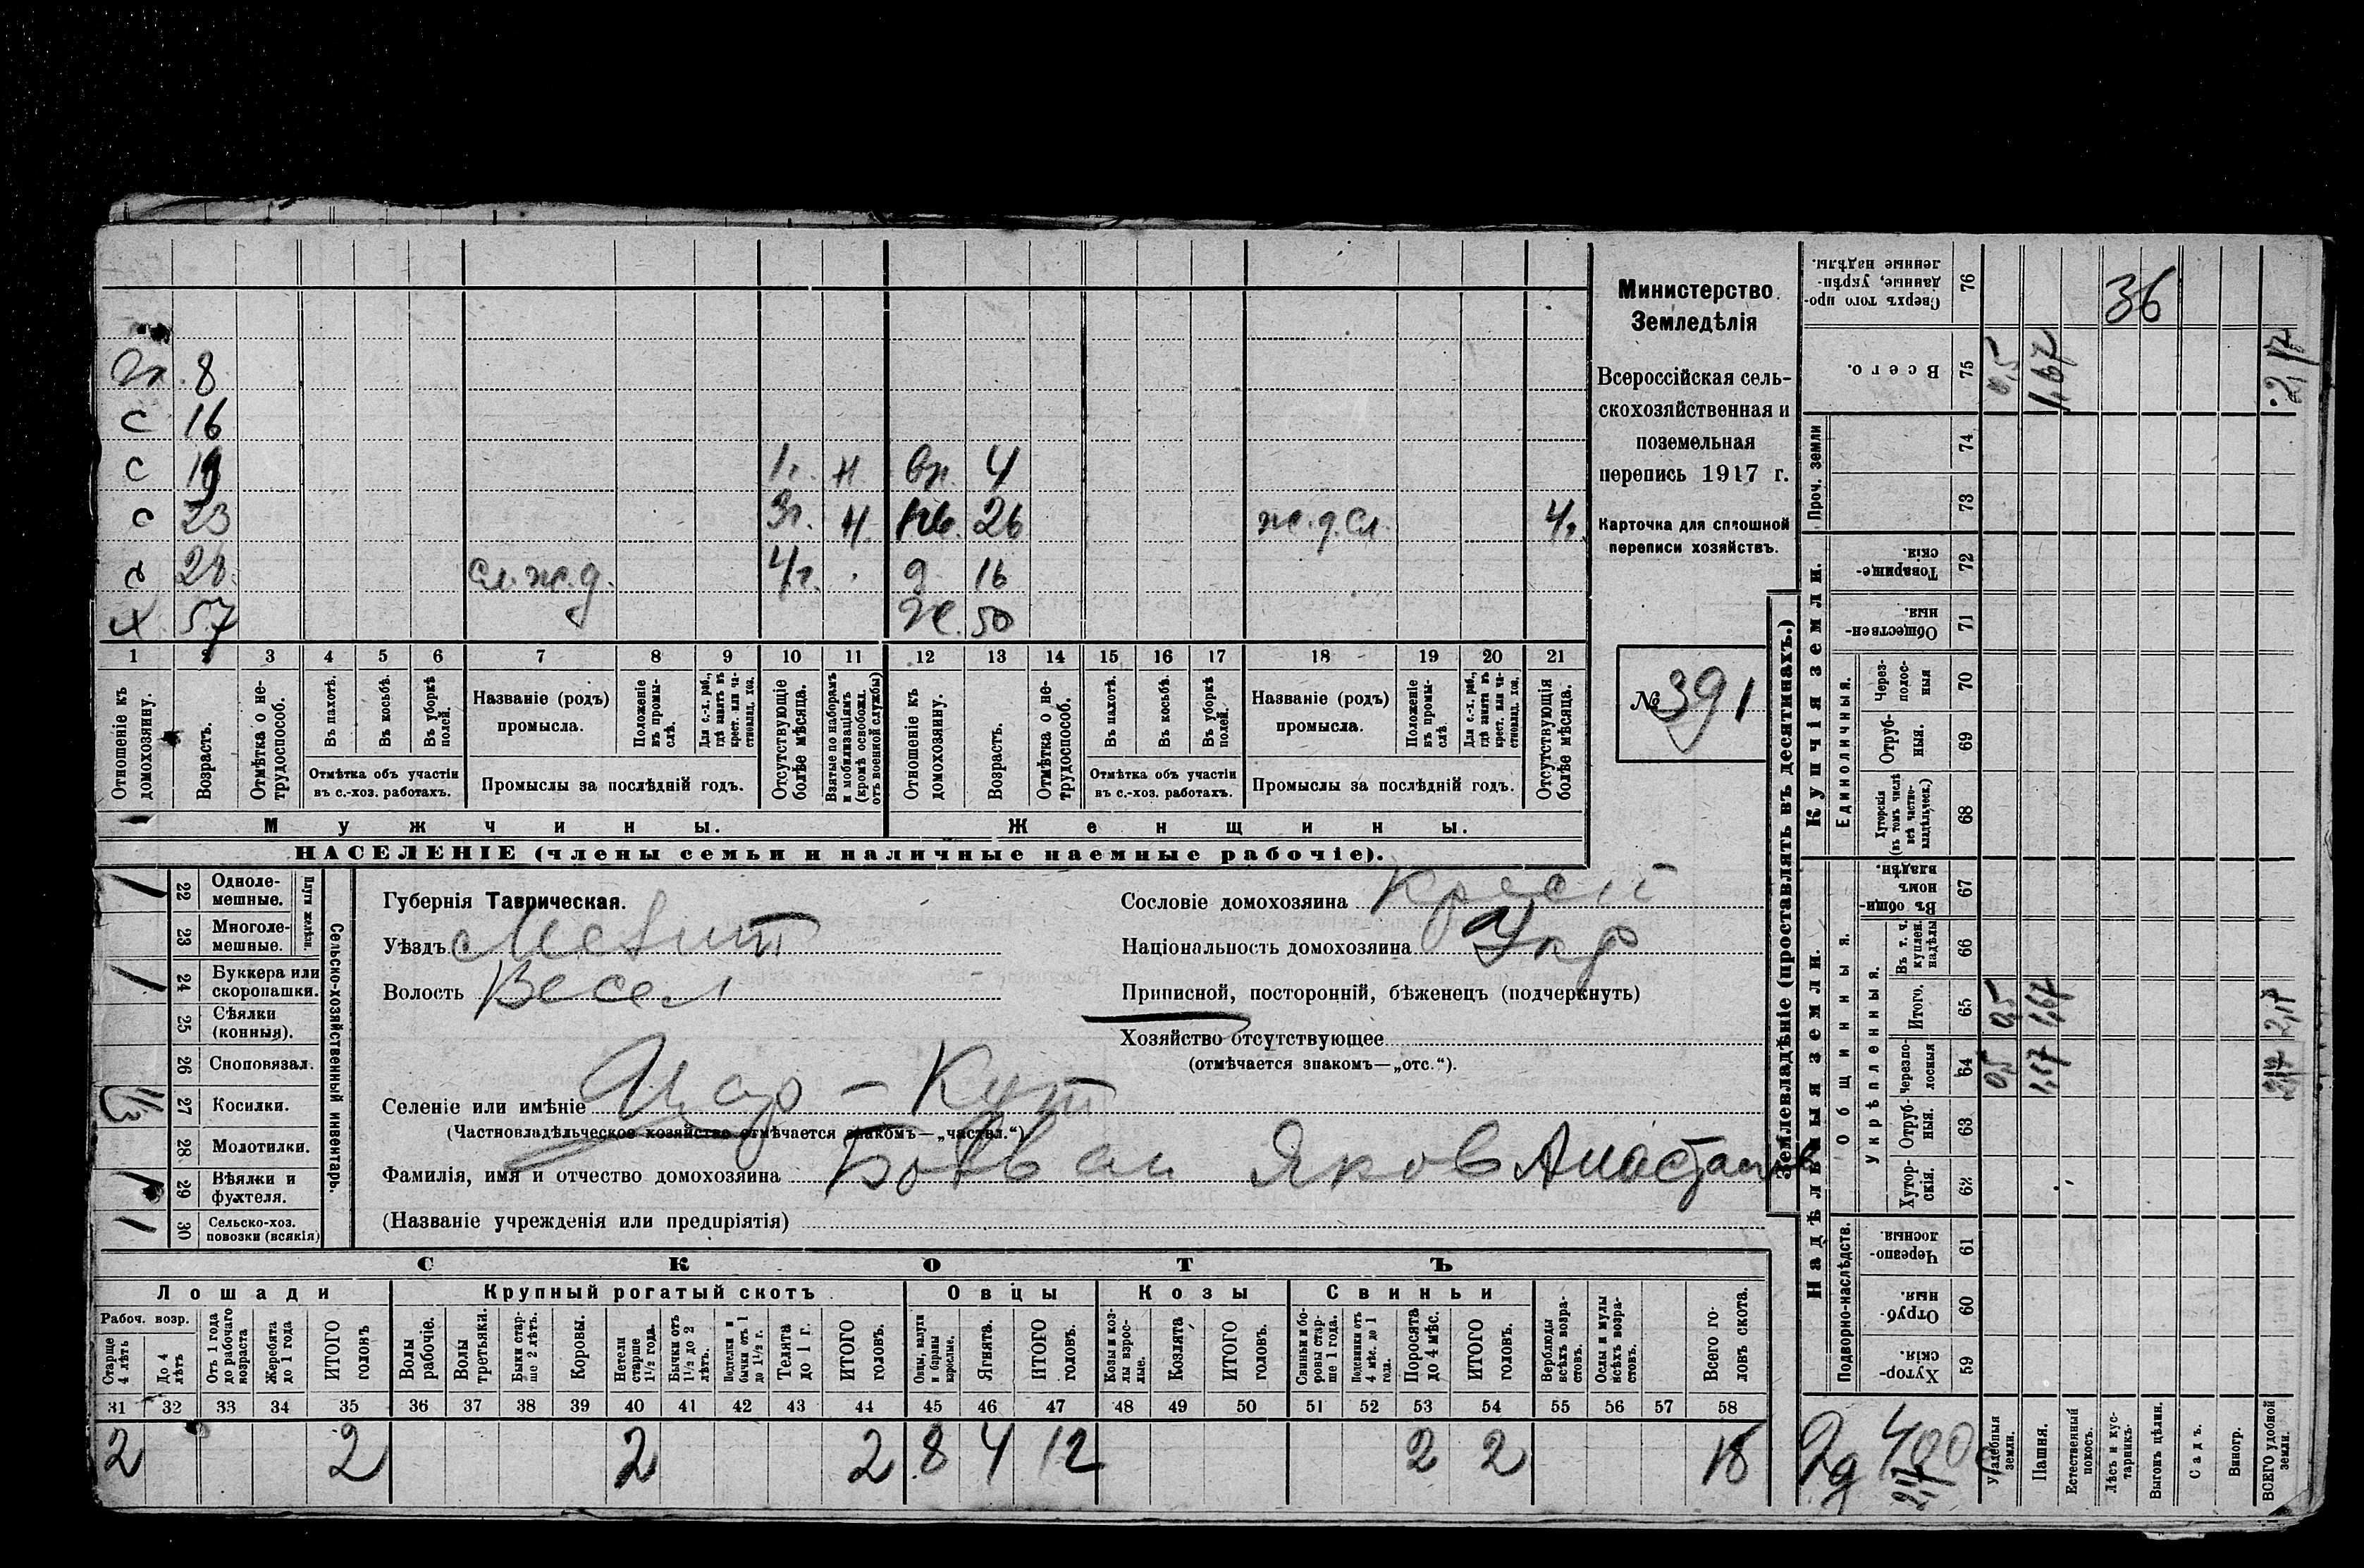 Гл. 8
с 16
с 19 1г. н. вн. 4
с 23 3г. н. нев. 26 ж.д.сл. 4г.
с 28. сл.ж.д. 4г. д 16
х 57 Ж. 50
1 2 3 4 5 6 7 8 9 10 11 12 13 14 15 16 17 18 19 20 21
Отношеніе къ домохозяину.
Возрастъ.
Отмѣтка о нетрудоспособ.
Въ пахотѣ.
Въ косьбѣ.
Въ уборкѣ полей.
Отмѣтка объ участіи въ с.-хоз. работахъ.
Названіе (родъ) промысла.
Положеніе въ промыслѣ.
Для с.-х. раб., гдѣ занятъ въ крест. или частновлад. хоз.
Промыслы за послѣдній годъ.
Отсутствующіе болѣе мѣсяца.
Взятые по наборамъ и мобилизаціямъ (кромѣ освобожд. отъ военной службы)
Отношеніе къ домохозяину.
Возрастъ.
Отмѣтка о нетрудоспособ.
Въ пахотѣ.
Въ косьбѣ.
Въ уборкѣ полей.
Отмѣтка объ участіи въ с.-хоз. работахъ.
Названіе (родъ) промысла.
Положеніе въ промыслѣ.
Для с.-х. раб., гдѣ занята въ крест. или частновлад. хоз.
Промыслы за послѣдній годъ.
Отсутствующія болѣе мѣсяца.
Мужчины.
Женщины.
НАСЕЛЕНІЕ (члены семьи и наличные наемные рабочіе).
Министерство
Земледѣлія
Всероссійская сель-
скохозяйственная и
поземельная
перепись 1917 г.
Карточка для сплошной
переписи хозяйствъ.
№ 391
1 22 Однолемешные.
23 Многолемешные.
Плуги желѣзн.
1 24 Буккера или скоропашки.
25 Сѣялки (конныя).
26 Сноповязал.
1/3 27 Косилки.
28 Молотилки.
1 29 Вѣялки и фухтеля.
1 30 Сельско-хоз. повозки (всякія)
Сельско-хозяйственный инвентарь.
Губернія Таврическая.
Уѣздъ Мелит
Волость Весел
Сословіе домохозяина Кресті
Національность домохозяина Укр
Приписной, посторонній, бѣженецъ (подчеркнуть)
Хозяйство отсутствующее
(отмѣчается знакомъ—„отс.“).
Селеніе или имѣніе - Кут
(Частновладѣльческое хозяйство отмѣчается знакомъ—„частвл.“)
Фамилія, имя и отчество домохозяина Яков
(Названіе учрежденія или предпріятія)
СКОТЪ
Лошади Крупный рогатый скотъ Овцы Козы Свиньи
Рабоч. возр.
Старше 4 лѣтъ
До 4 лѣтъ
Отъ 1 года до рабочаго возраста
Жеребята до 1 года
ИТОГО головъ
Волы рабочіе.
Волы третьяки.
Быки старше 2 лѣтъ.
Коровы.
Нетели старше 1 1/2 года.
Бычки отъ 1 1/2 до 2 лѣтъ.
Подтелки и бычки отъ 1 до 1 1/2 г.
Телята до 1 г.
ИТОГО головъ.
Овцы, валухи и бараны взрослые.
Ягнята.
ИТОГО головъ.
Козы и козлы взрослые.
Козлята.
ИТОГО головъ.
Свиньи и боровы старше 1 года.
Подсвинки отъ 4 мѣс. до 1 года.
Поросята до 4 мѣс.
ИТОГО головъ.
Верблюды всѣхъ возрастовъ.
Ослы и мулы всѣхъ возрастовъ.
Всего головъ скота.
31 32 33 34 35 36 37 38 39 40 41 42 43 44 45 46 47 48 49 50 51 52 53 54 55 56 57 58
2 2 2 2 8 4 12 2 2 18
Землевладѣніе (проставлять въ десятинахъ.)
Сверхъ того проданные, укрѣпленные надѣлы. 76 36
Всего. 75 0,5 1,67 2,17
Проч. земли
74
73
Купчія земли.
Товарищескія. 72
Общественныя. 71
Единоличныя.
Черезполосныя 70
Отрубныя. 69
Хуторскія (въ томъ числѣ всѣ частновладѣльческ.) 68
Надѣльныя земли.
Общинныя.
Въ общинномъ владѣн. 67
Укрѣпленныя.
Въ т. ч. куплен. надѣлы 66
Итого. 65 0,5 1,67 2,17
Черезполосныя 64 0,5 1,67 2,17
Отрубныя. 63
Хуторскія. 62
Подворно-наслѣдств.
Черезполосныя. 61
Отрубныя. 60
Хуторскія. 59
2д 400с
2,17
Усадебныя земли.
Пашня.
Естественный покосъ.
Лѣсъ и кустарникъ.
Выгонъ цѣлин.
Садъ.
Виногр.
ВСЕГО удобной земли.